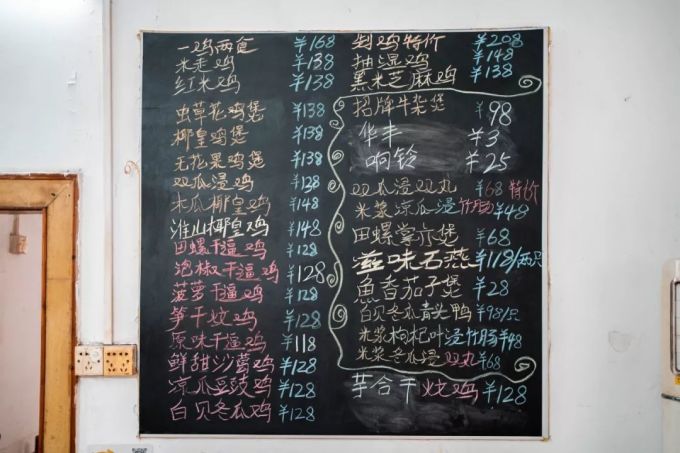 一鸡两食 ¥168
米走鸡 ¥138
红米鸡 ¥138
虫草花鸡煲 ¥138
椰皇鸡煲 ¥138
无花果鸡煲 ¥138
双瓜浸鸡 ¥138
木瓜椰皇鸡 ¥148
淮山椰皇鸡 ¥148
田螺干逼鸡 ¥128
泡椒干逼鸡 ¥128
菠萝干逼鸡 ¥128
笋干炆鸡 ¥128
原味干逼鸡 ¥118
鲜甜沙葛鸡 ¥128
凉瓜豆豉鸡 ¥128
白贝冬瓜鸡 ¥128
鸡特价 ¥208
抽湿鸡 ¥148
黑米芝麻鸡 ¥138
招牌牛杂煲 ¥98
华丰 ¥3
响铃 ¥25
双瓜浸双丸 ¥68 特价
米浆凉瓜浸竹肠 ¥48
田螺掌亦煲 ¥68
滋味石燕 ¥118/两只
魚香茄子煲 ¥28
白贝冬瓜青头鸭 ¥98/只
米浆枸杞叶浸竹肠 ¥48
米浆冬瓜浸双丸 ¥68
芋合干炆鸡 ¥128